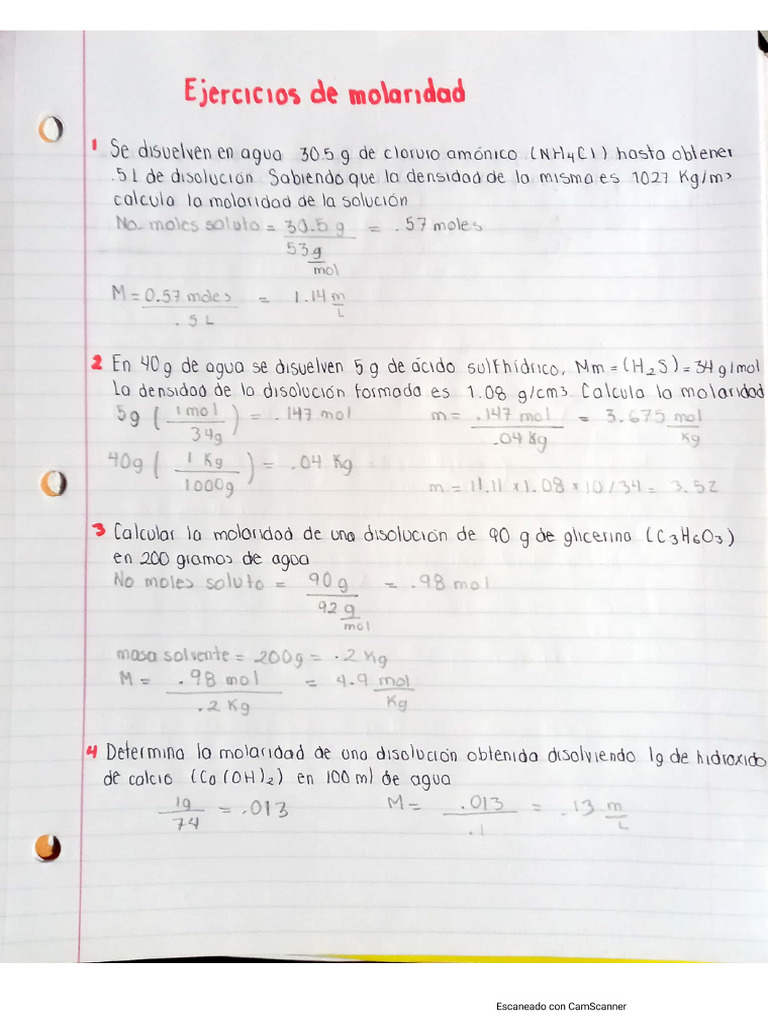 Ejercicios de molaridad
1 Se disuelven en agua 30.5 g de cloruro amónico (NH4Cl) hasta obtener
.5 L de disolución. Sabiendo que la densidad de la misma es 1027 Kg/m3
calcula la molaridad de la solución
No. moles soluto = 30.5 g / 53 g/mol = .57 moles
M = 0.57 moles / .5 L = 1.14 m/L
2 En 40g de agua se disuelven 5 g de ácido sulfhídrico, Mm = (H2S) = 34 g/mol
La densidad de la disolución formada es 1.08 g/cm3. Calcula la molaridad
5g (1 mol / 34g) = .147 mol m = .147 mol / .04 Kg = 3.675 mol/Kg
40g (1 Kg / 1000g) = .04 Kg m = 11.11 * 1.08 * 10 / 34 = 3.52
3 Calcular la molaridad de una disolución de 90 g de glicerina (C3H6O3)
en 200 gramos de agua
No moles soluto = 90 g / 92 g/mol = .98 mol
masa solvente = 200g = .2 Kg
M = .98 mol / .2 Kg = 4.9 mol/Kg
4 Determina la molaridad de una disolución obtenida disolviendo 1g de hidroxido
de calcio (Ca(OH)2) en 100 ml de agua
1g / 74 = .013 M = .013 / .1 = .13 m/L
Escaneado con CamScanner